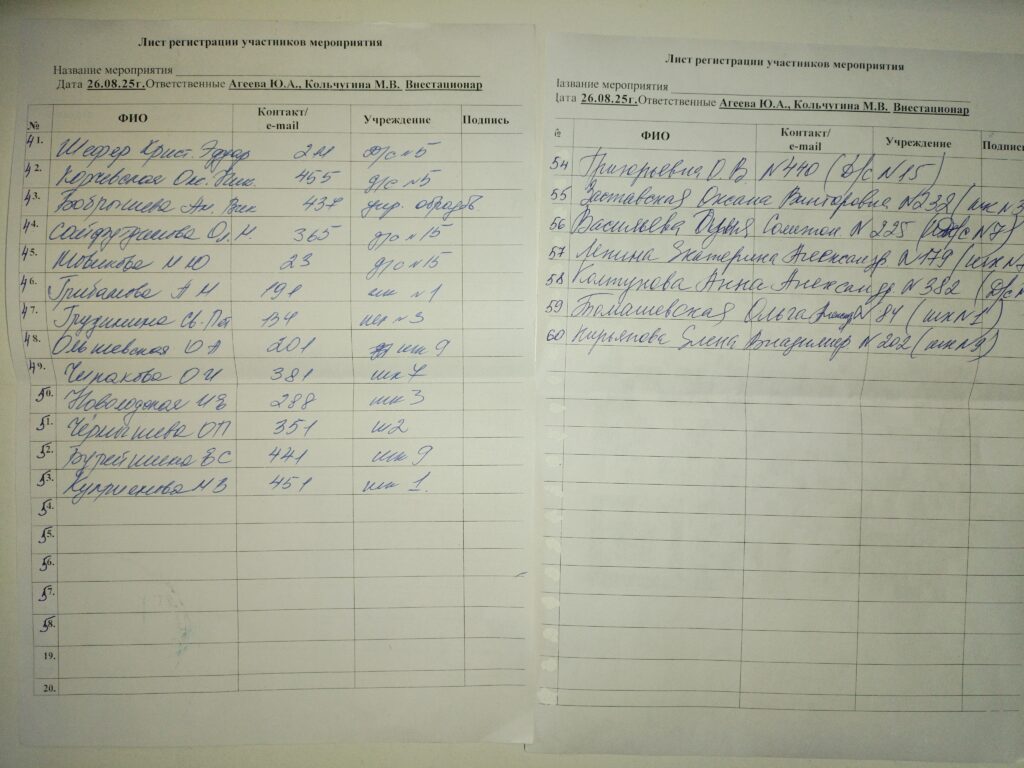 Лист регистрации участников мероприятия
Название мероприятия
Дата 26.08.25г. Ответственные Агеева Ю.А., Кольчугина М.В. Внестационар
№ ФИО Контакт/ e-mail Учреждение Подпись
41. Шефер Крист. Эдуар 2М д/с №5
42. Корчевская Окс. Ник. 455 д/с №5
43. Бобрышева Ан. Вик 437
44. 365 д/с №15
45. Новикова М Ю 23 д/с №15
46. А Н 191 шк №1
47. Грузинцина Св. Пет 134 №3
48. Ольшевская Ю А 201 шк 9
49. О И 381 шк 7
50. 288 шк 3
51. Чернышева О П 351 ш 2
52. 441 шк 9
53. Куприянова М В 451 шк 1.
54.
55.
56.
57.
58.
19.
20.
Лист регистрации участников мероприятия
Название мероприятия
Дата 26.08.25г. Ответственные Агеева Ю.А., Кольчугина М.В. Внестационар
№ ФИО Контакт/ e-mail Учреждение Подпись
54 Григорьевна О.В. №440 (Д/с №15)
55 Заставская Оксана Викторовна №232 (шк №3
56 Васильева №225 (Д/с №7)
57 Лепина Екатерина Александр №179 (шк №7
58 Колтунова Анна Александр №382 (Д/с №
59 Томашевская Ольга №84 (шк №1)
60 Кирьянова Елена Владимир №202 (шк №9)